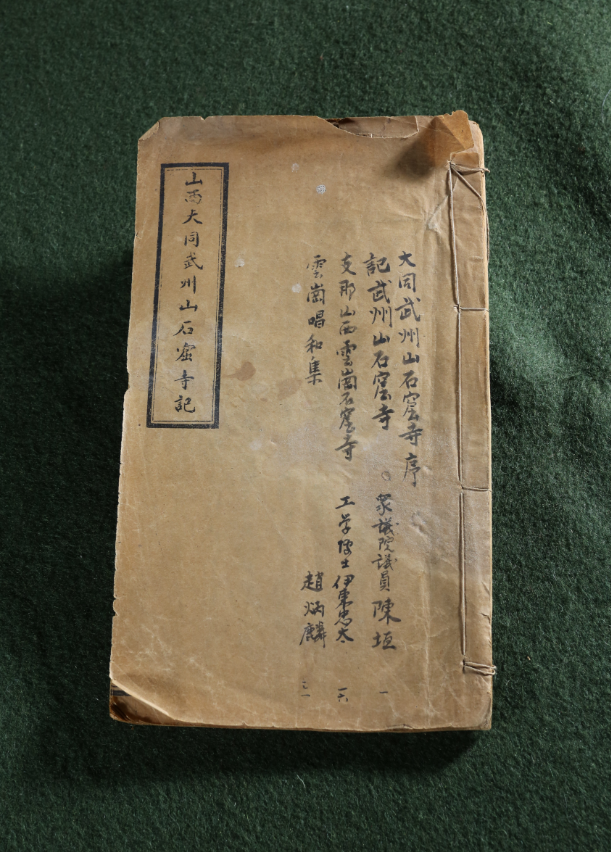 大同武州山石窟寺序
記武州山石窟寺。衆議院議員陳垣 一
支那山西雲崗石窟寺 工学博士伊東忠太 一六
雲崗唱和集 趙炳麟 三一
山西大同武州山石窟寺記